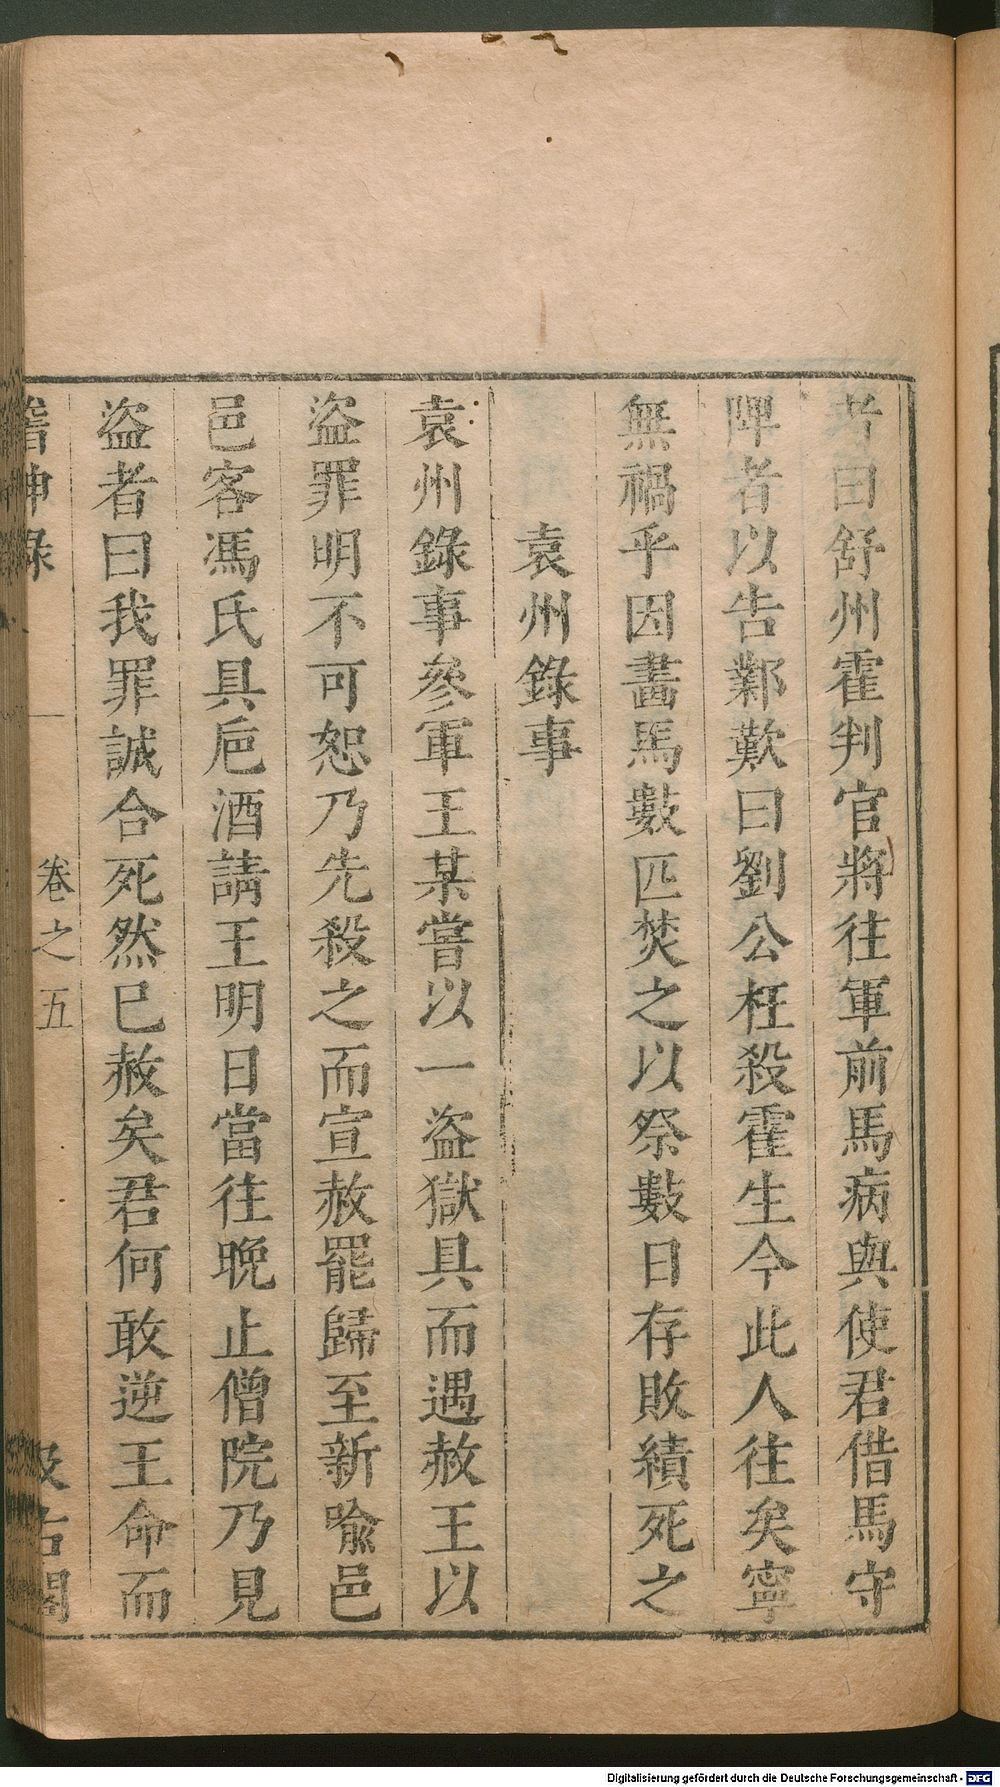 者曰舒州霍判官將往軍前馬病與使君借馬守
陴者以告鄴歎曰劉公枉殺霍生今此人往矣寧
無禍乎因畵馬數匹焚之以祭數日存敗績死之
袁州錄事
袁州錄事參軍王某嘗以一盜獄具而遇赦王以
盜罪明不可恕乃先殺之而宣赦罷歸至新喩邑
邑客馮氏具巵酒請王明日當往晚止僧院乃見
盜者曰我罪誠合死然已赦矣君何敢逆王命而
稽神錄
卷之五
汲古閣
Digitalisierung gefördert durch die Deutsche Forschungsgemeinschaft - DFG